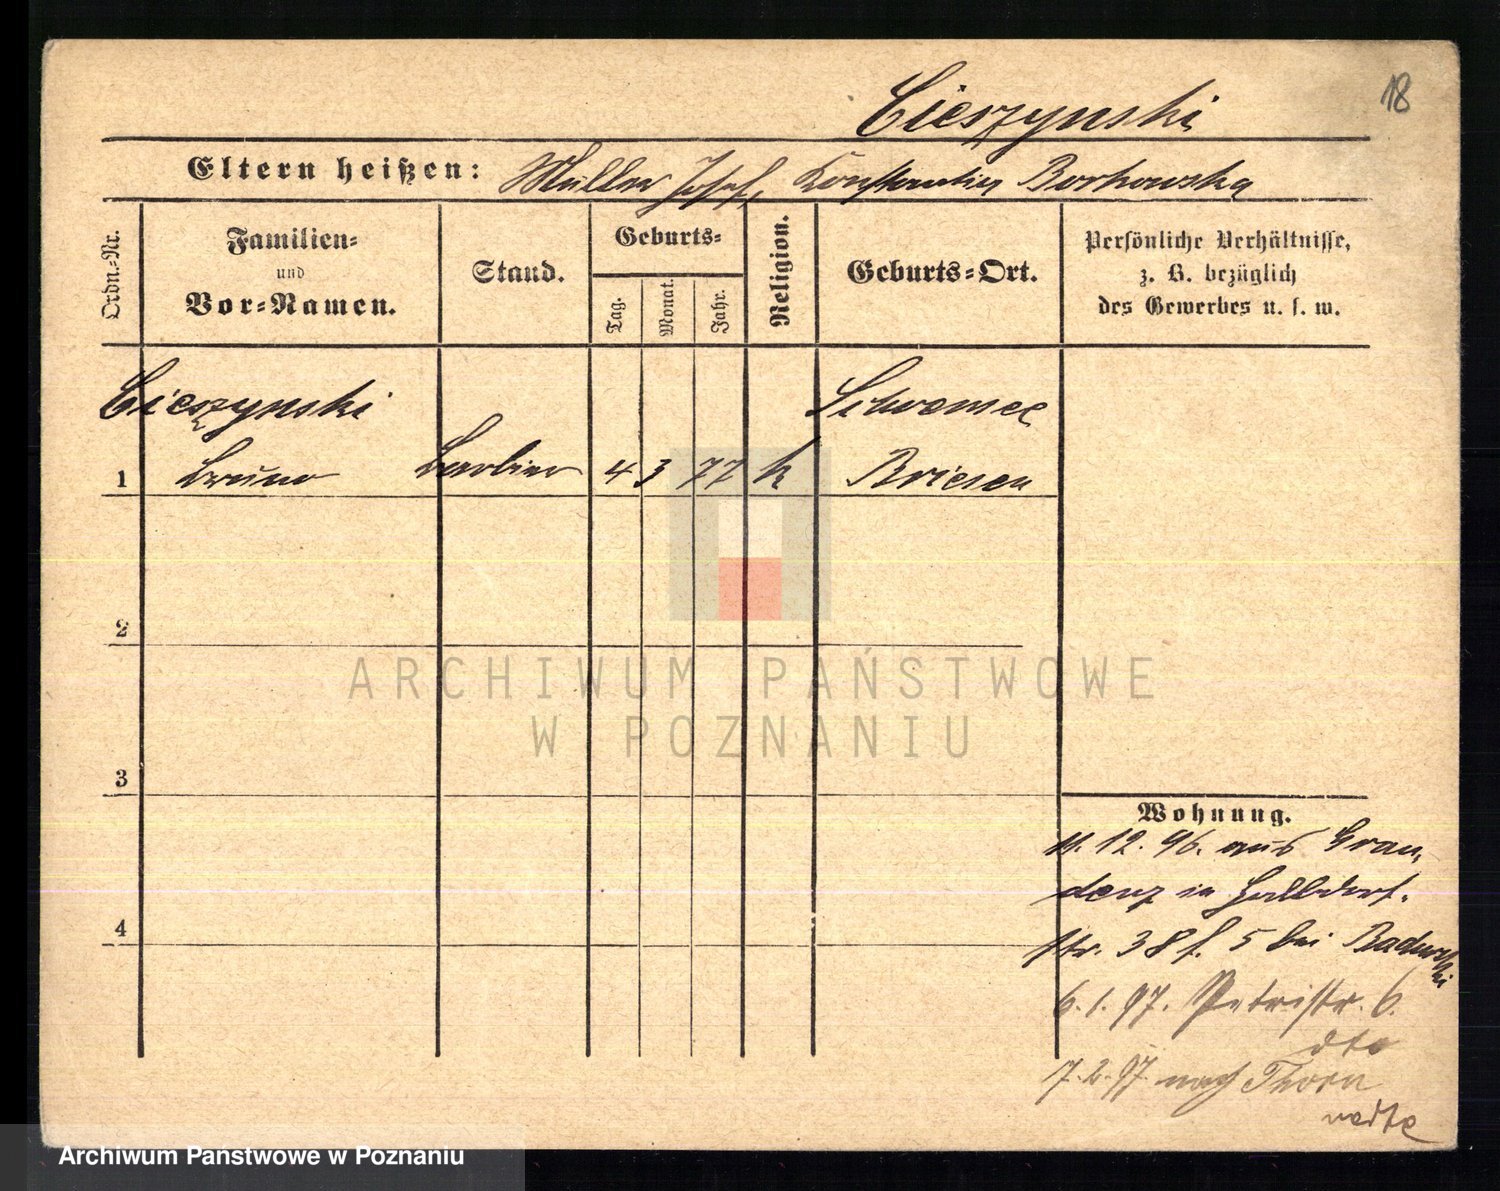 18
Cieszynski
Eltern heißen: Müller Josef, Konstantia Borkowska
Ordn.-Nr.
Familien-
und
Vor-Namen.
Stand.
Geburts-
Tag.
Monat.
Jahr.
Religion.
Geburts-Ort.
Persönliche Verhältnisse,
z. B. bezüglich
des Gewerbes u. s. w.
Cieszynski
1 Bruno Barbier 4 3 77 k Briesen
2
3
4
Wohnung.
11. 12. 96. aus Grau,
denz in Halbdorf.
str. 38 f. 5 bei
6. 1. 97. Petristr. 6.
dto
7. 2. 97 nach Thorn
ARCHIWUM PAŃSTWOWE
W POZNANIU
Archiwum Państwowe w Poznaniu